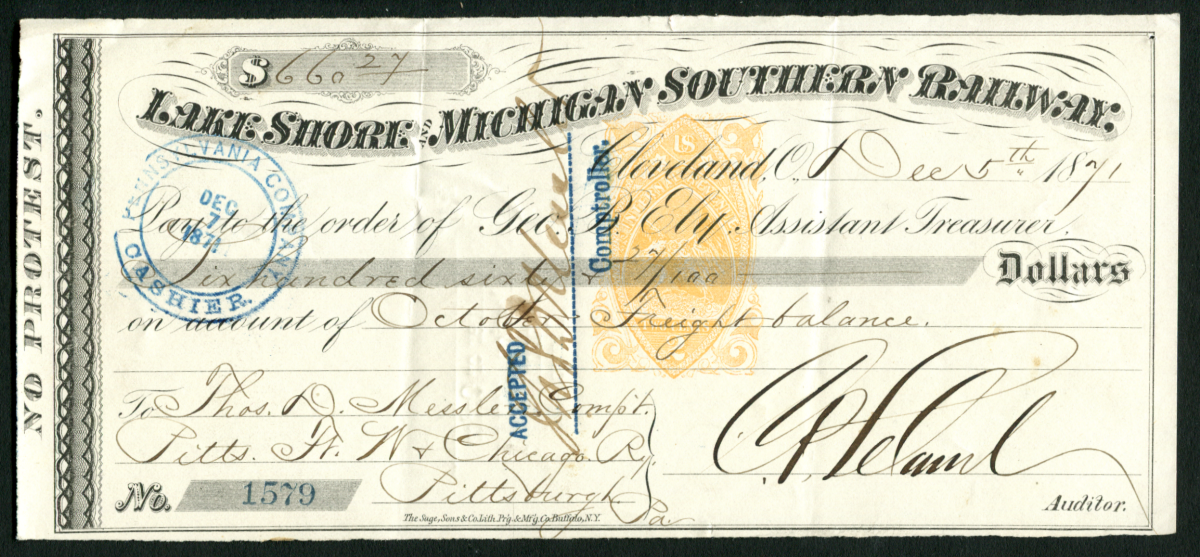 NO PROTEST.
$ 660 27
LAKE SHORE AND MICHIGAN SOUTHERN RAILWAY.
Cleveland, O., Dec 5th 1871
Pay to the order of Geo. B. Ely, Assistant Treasurer.
Six hundred sixty & 27/100 Dollars
on account of October Freight balance.
To Thos. D. Messler Compt.
Pitts. Ft. W & Chicago Ry.
Pittsburgh Pa.
No. 1579
Auditor.
The Sage, Sons & Co. Lith. Prg. & M'f'g. Co. Buffalo, N.Y.
PENNSYLVANIA COMPANY
DEC
7
1871
CASHIER.
ACCEPTED
Comptroller.